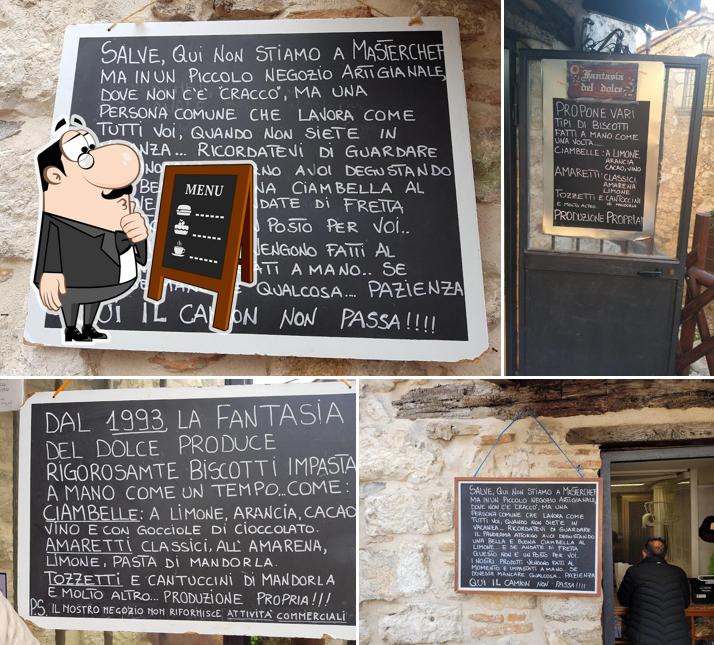 SALVE, QUI NON STIAMO A MASTERCHEF
MA IN UN PICCOLO NEGOZIO ARTIGIANALE,
DOVE NON C'È 'CRACCO', MA UNA
PERSONA COMUNE CHE LAVORA COME
TUTTI VOI, QUANDO NON SIETE IN
ANZA... RICORDATEVI DI GUARDARE
NO A VOI DEGUSTANDO
BE NA CIAMBELLA AL
NDATE DI FRETTA
N POSTO PER VOI..
VENGONO FATTI AL
ATI A MANO.. SE
MAN QUALCOSA.... PAZIENZA
QUI IL CAMION NON PASSA!!!!
MENU
Fantasia
del dolce
PROPONE VARI
TIPI DI BISCOTTI
FATTI A MANO COME
UNA VOLTA....
CIAMBELLE: A LIMONE,
ARANCIA
CACAO, VINO
AMARETTI: CLASSICI
AMARENA
LIMONE
TOZZETTI E CANTUCCINI
E MOLTO ALTRO.. DI MANDORLA
PRODUZIONE PROPRIA!!
DAL 1993 LA FANTASIA
DEL DOLCE PRODUCE
RIGOROSAMTE BISCOTTI IMPASTA
A MANO COME UN TEMPO...COME:
CIAMBELLE: A LIMONE, ARANCIA, CACAO
VINO E CON GOCCIOLE DI CIOCCOLATO.
AMARETTI CLASSICI, ALL' AMARENA,
LIMONE, PASTA DI MANDORLA.
TOZZETTI E CANTUCCINI DI MANDORLA
E MOLTO ALTRO... PRODUZIONE PROPRIA!!!
P.S. IL NOSTRO NEGOZIO NON RIFORNISCE ATTIVITA' COMMERCIALI
SALVE, QUI NON STIAMO A MASTERCHEF
MA IN UN PICCOLO NEGOZIO ARTIGIANALE,
DOVE NON C'È 'CRACCO', MA UNA
PERSONA COMUNE CHE LAVORA COME
TUTTI VOI, QUANDO NON SIETE IN
VACANZA... RICORDATEVI DI GUARDARE
IL PANORAMA ATTORNO A VOI DEGUSTANDO
UNA BELLA E BUONA CIAMBELLA AL
LIMONE... E SE ANDATE DI FRETTA
QUESTO NON È UN POSTO PER VOI..
I NOSTRI PRODOTTI VENGONO FATTI AL
MOMENTO E IMPASTATI A MANO.. SE
DOVESSE MANCARE QUALCOSA... PAZIENZA
QUI IL CAMION NON PASSA!!!!